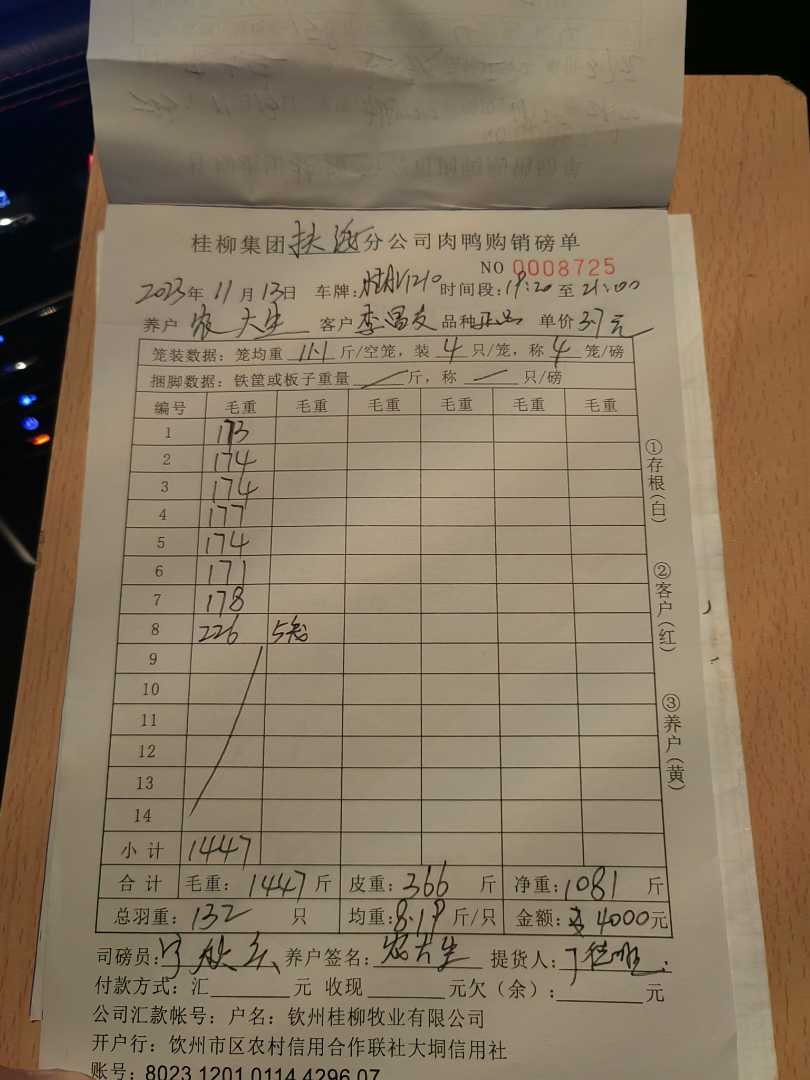 桂柳集团扶绥分公司肉鸭购销磅单
NO 0008725
2023年11月13日 车牌: 1210 时间段:19:20至21:00
养户 农大生 客户 李昌友 品种 正品 单价 3.7元
笼装数据: 笼均重 11.1 斤/空笼, 装 4 只/笼, 称 4 笼/磅
捆脚数据: 铁筐或板子重量 斤, 称 只/磅
编号 毛重 毛重 毛重 毛重 毛重 毛重
1 173
2 174
3 174
4 177
5 174
6 171
7 178
8 226 5笼
9
10
11
12
13
14
小计 1447
合计 毛重: 1447斤 皮重: 366 斤 净重: 1081 斤
总羽重: 132 只 均重: 8.19 斤/只 金额: 4000元
司磅员: 养户签名: 农大生 提货人:
付款方式: 汇 元 收现 元欠(余): 元
公司汇款帐号: 户名: 钦州桂柳牧业有限公司
开户行: 饮州市区农村信用合作联社大垌信用社
账号: 8023 1201 0114 4296 07
①存根(白)
②客户(红)
③养户(黄)